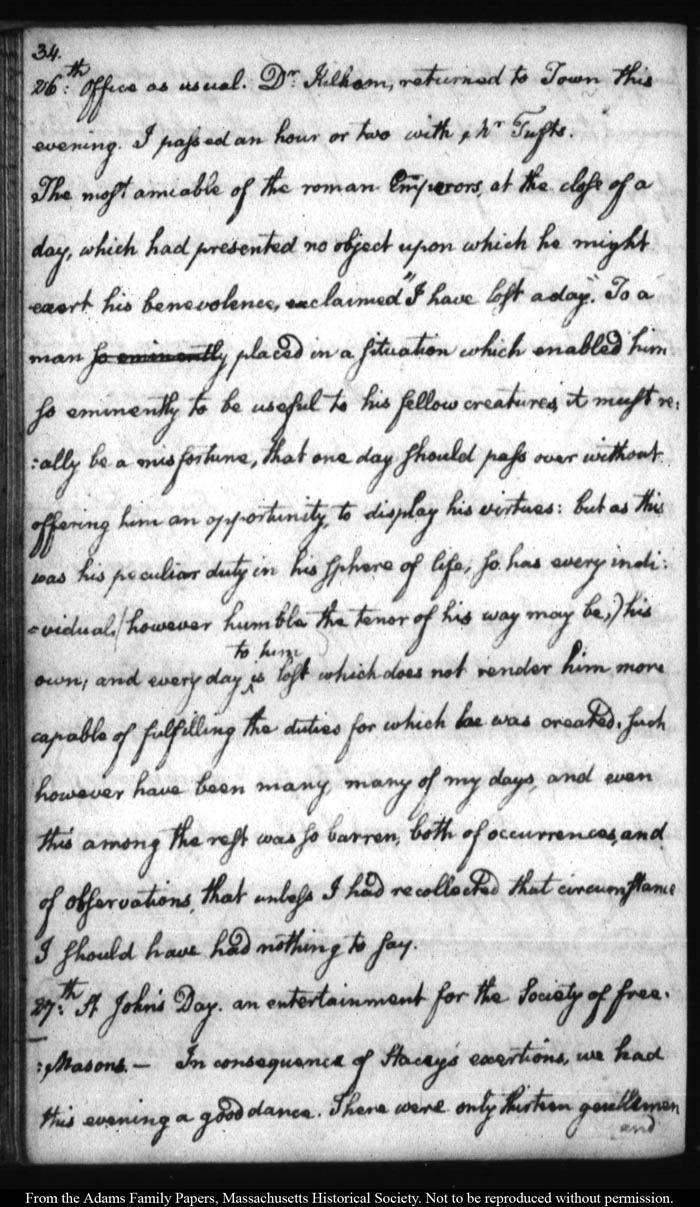 34.
26.th Office as usual. Dr. Kilham, returned to Town this
evening. I passed an hour or two with Mr Tufts.
The most amiable of the roman Emperors, at the close of a
day, which had presented no object upon which he might
exert his benevolence, exclaimed "I have lost a day". To a
man so eminently, placed in a situation which enabled him
so eminently to be useful to his fellow creatures, it must re:
:ally be a misfortune, that one day should pass over without
offering him an opportunity, to display his virtues: but as this
was his peculiar duty in his sphere of life, so has every indi:
=vidual, (however humble the tenor of his way may be,) his
own; and every day is to him lost which does not render him more
capable of fulfilling the duties for which he was created. such
however have been many, many of my days, and even
this among the rest was so barren, both of occurrences, and
of observations, that unless I had recollected that circumstance
I should have had nothing to say.
27.th St John's Day. an entertainment for the Society of free:
:Masons. — In consequence of Stacey's exertions, we had
this evening a good dance. There were only thirteen gentlemen
and
From the Adams Family Papers, Massachusetts Historical Society. Not to be reproduced without permission.